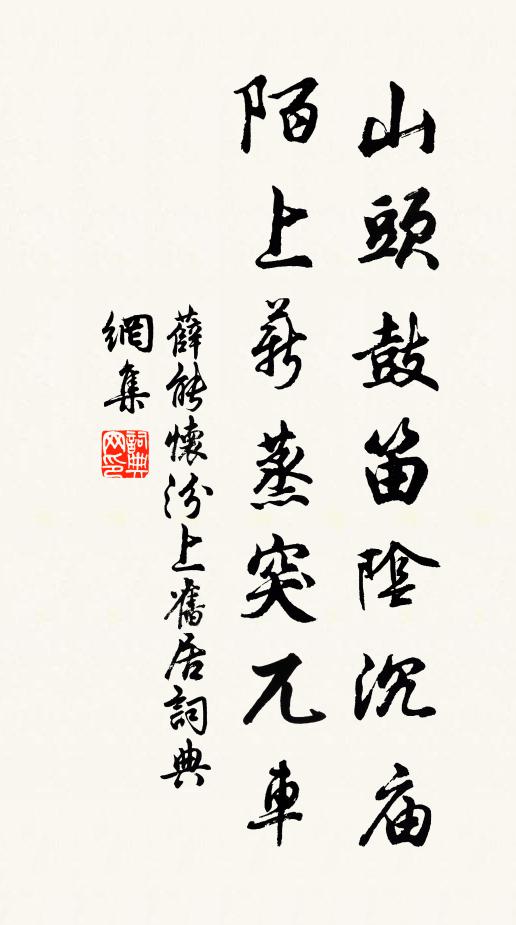 山頭鼓笛陰沉庙
陌上薪蒸突兀車
薛能懷汾上舊居詞典
網集
詞典网印